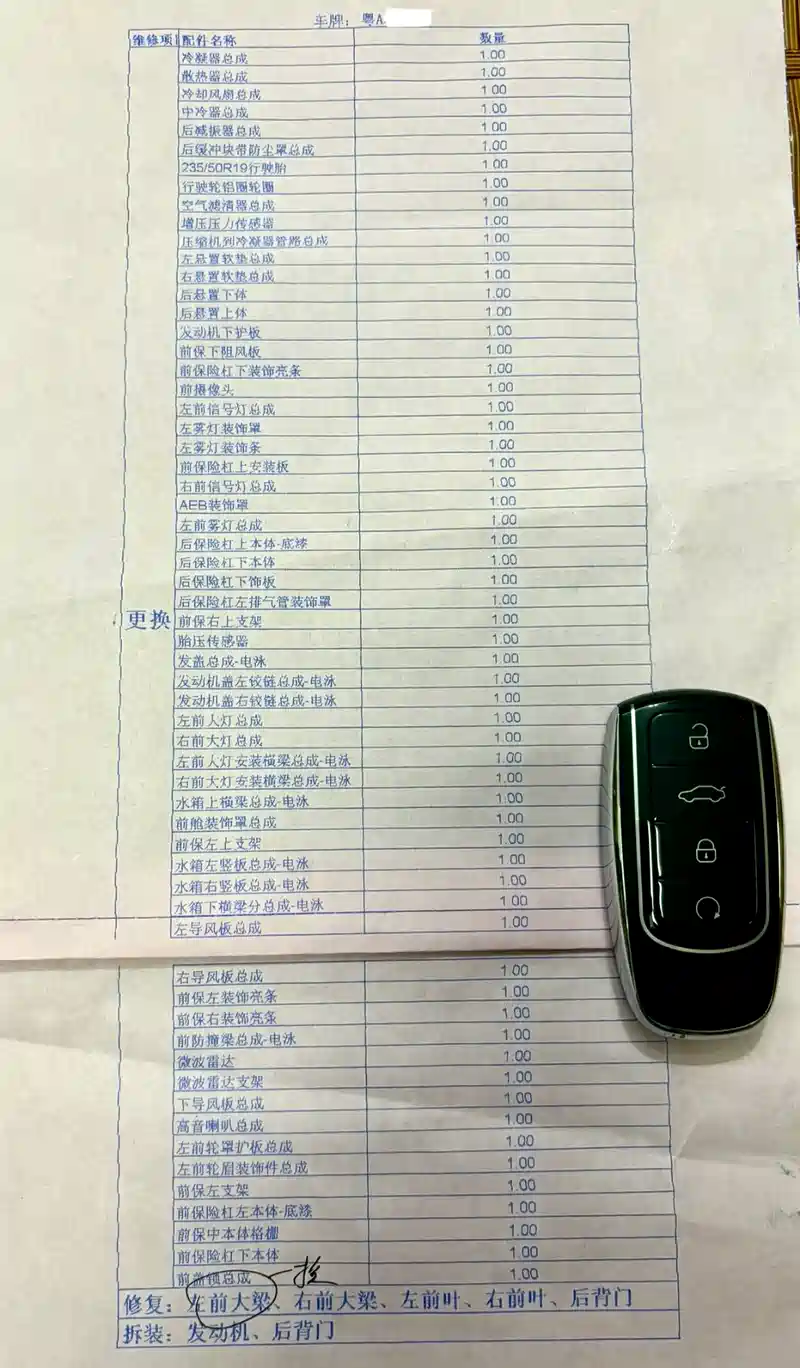 车牌：粤A
维修项 配件名称 数量
冷凝器总成 1.00
散热器总成 1.00
冷却风扇总成 1.00
中冷器总成 1.00
后减振器总成 1.00
后缓冲块带防尘罩总成 1.00
235/50R19行驶胎 1.00
行驶轮铝圈轮圈 1.00
空气滤清器总成 1.00
增压压力传感器 1.00
压缩机到冷凝器管路总成 1.00
左悬置软垫总成 1.00
右悬置软垫总成 1.00
后悬置下体 1.00
后悬置上体 1.00
发动机下护板 1.00
前保下阻风板 1.00
前保险杠下装饰亮条 1.00
前摄像头 1.00
左前信号灯总成 1.00
左雾灯装饰罩 1.00
左雾灯装饰条 1.00
前保险杠上安装板 1.00
右前信号灯总成 1.00
AEB装饰罩 1.00
左前雾灯总成 1.00
后保险杠上本体-底漆 1.00
后保险杠下本体 1.00
后保险杠下饰板 1.00
后保险杠左排气管装饰罩 1.00
更换 前保右上支架 1.00
胎压传感器 1.00
发盖总成-电泳 1.00
发动机盖左铰链总成-电泳 1.00
发动机盖右铰链总成-电泳 1.00
左前大灯总成 1.00
右前大灯总成 1.00
左前大灯安装横梁总成-电泳 1.00
右前大灯安装横梁总成-电泳 1.00
水箱上横梁总成-电泳 1.00
前舱装饰罩总成 1.00
前保左上支架 1.00
水箱左竖板总成-电泳 1.00
水箱右竖板总成-电泳 1.00
水箱下横梁分总成-电泳 1.00
左导风板总成 1.00
右导风板总成 1.00
前保左装饰亮条 1.00
前保右装饰亮条 1.00
前防撞梁总成-电泳 1.00
微波雷达 1.00
微波雷达支架 1.00
下导风板总成 1.00
高音喇叭总成 1.00
左前轮罩护板总成 1.00
左前轮眉装饰件总成 1.00
前保左支架 1.00
前保险杠左本体-底漆 1.00
前保中本体格栅 1.00
前保险杠下本体 1.00
前盖锁总成 1.00
修复：左前大梁、右前大梁、左前叶、右前叶、后背门
拆装：发动机、后背门